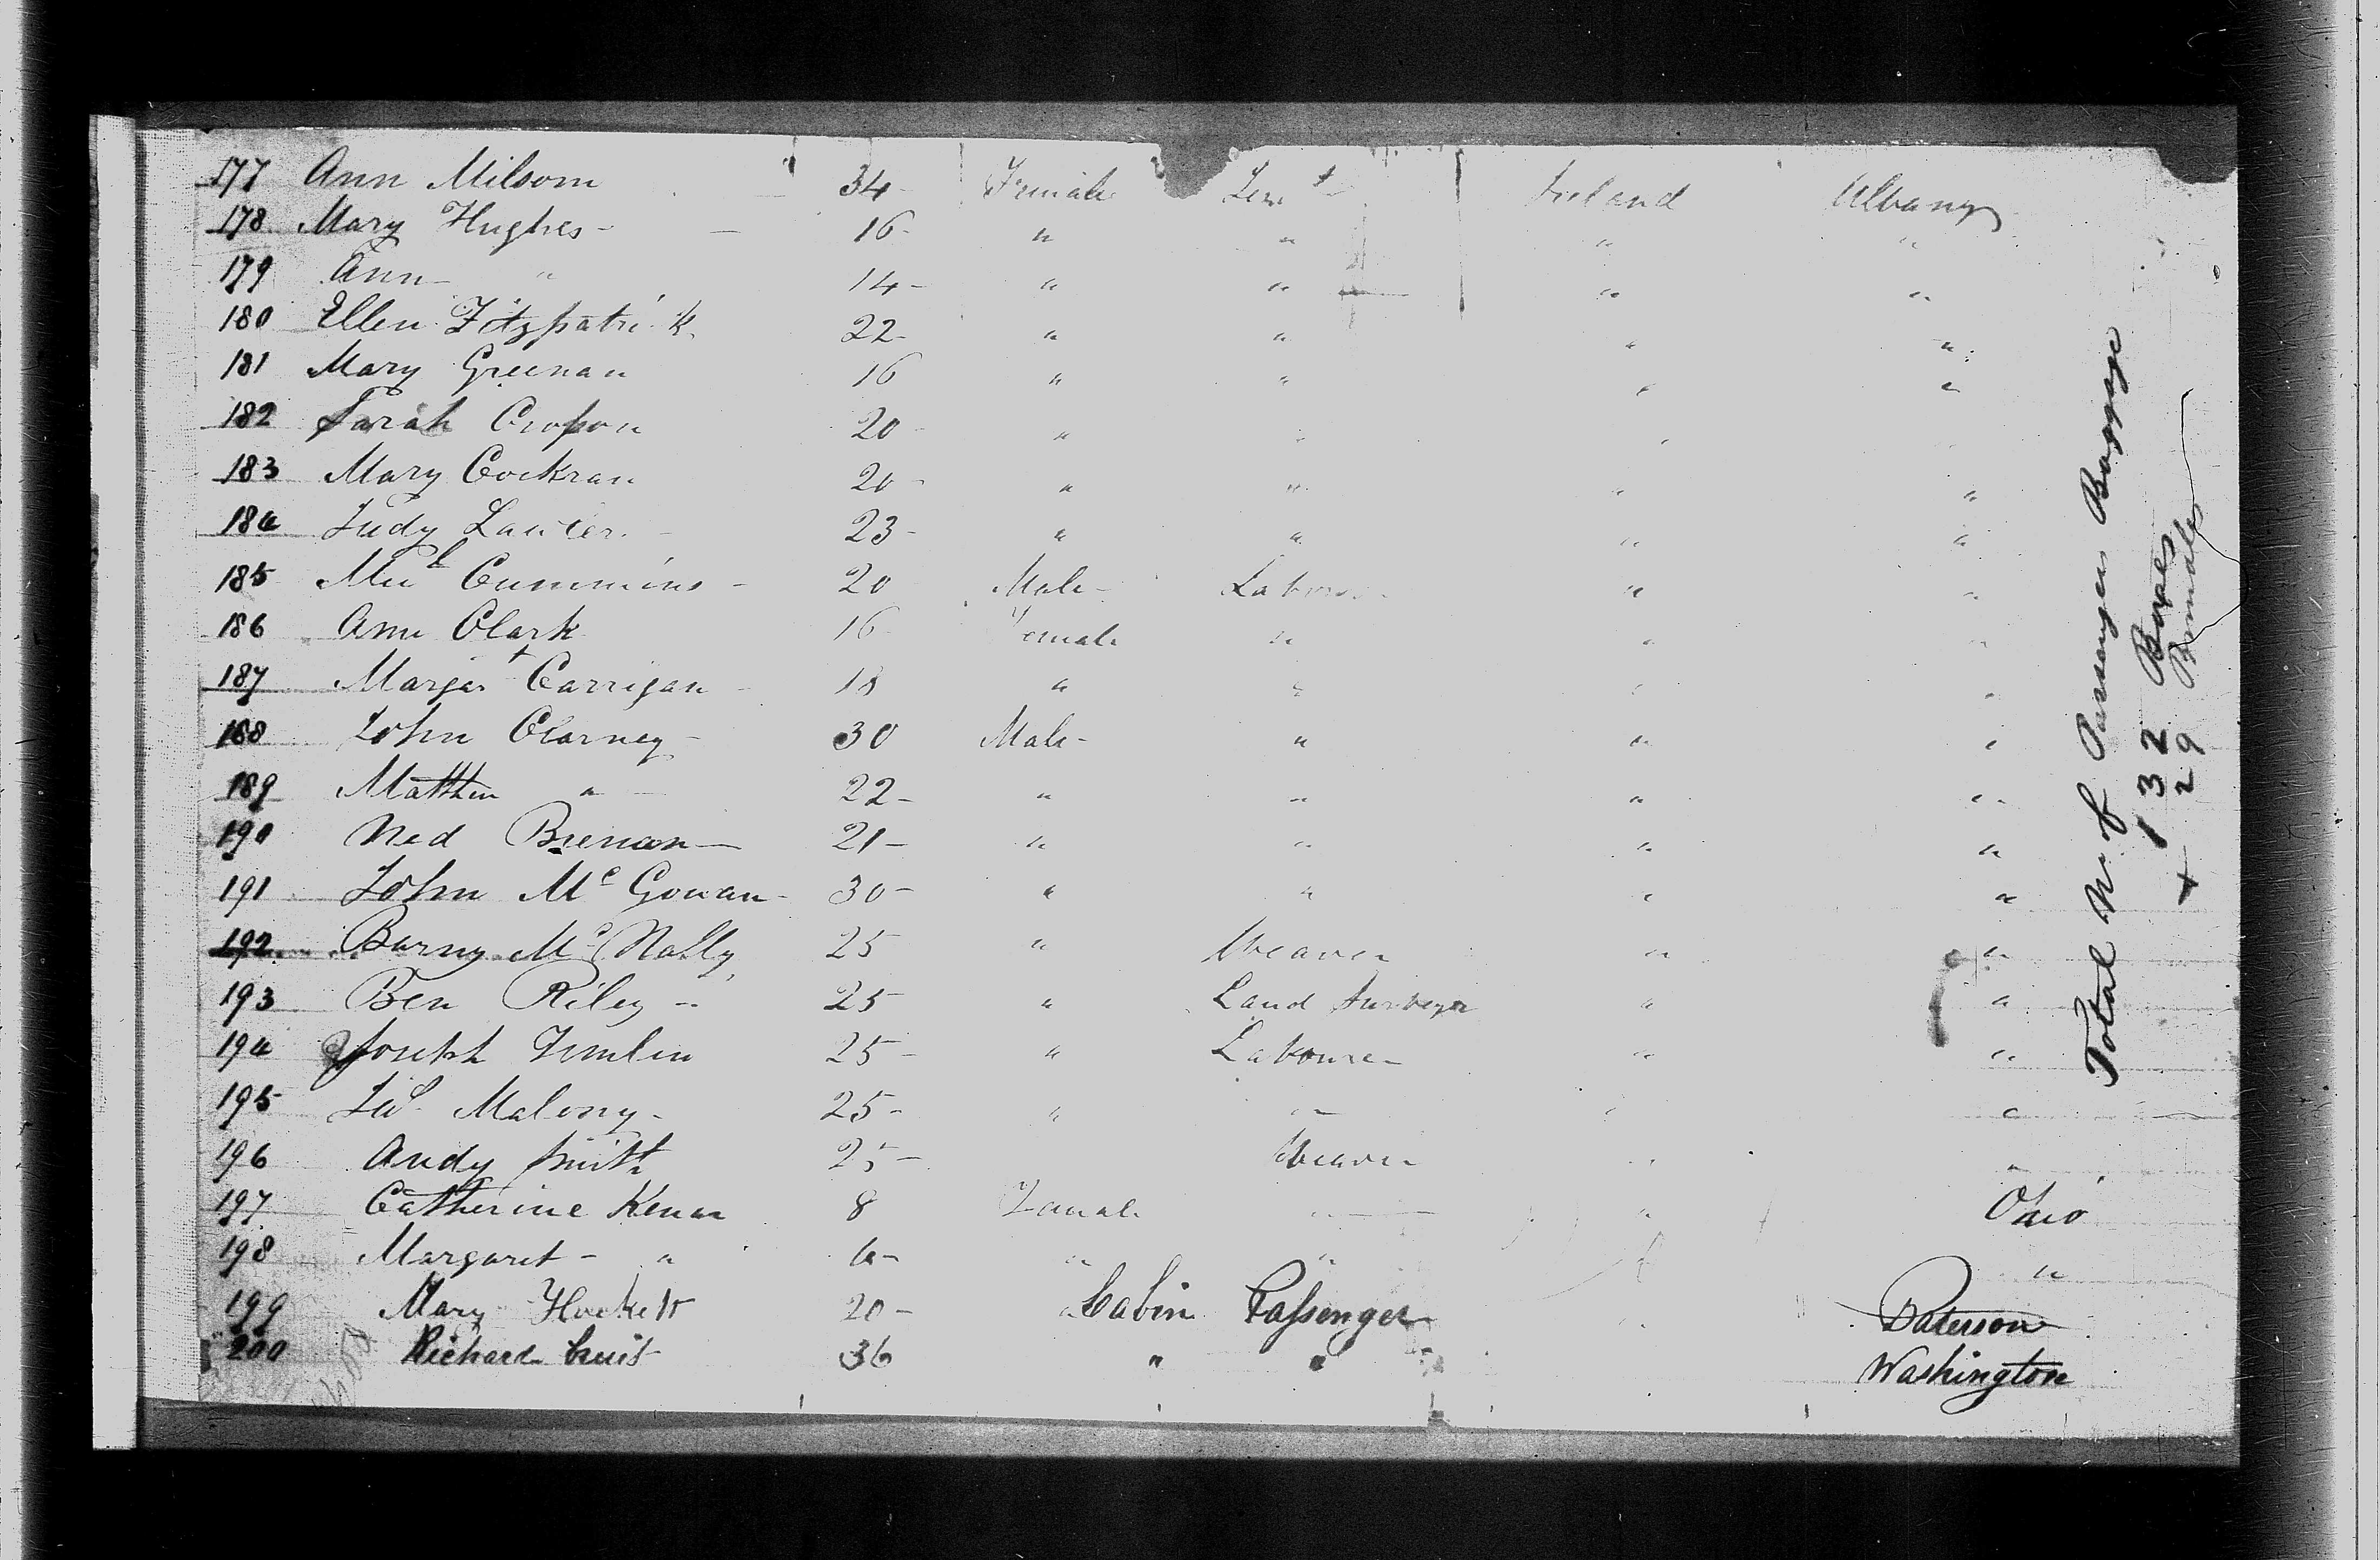 177 Ann Milsom 34 - Female Ireland Albany
178 Mary Hughes - - 16 - " " " "
179 Ann " 14 - " " " "
180 Ellen Fitzpatrick 22 - " " " "
181 Mary Greenan 16 " " " "
182 Sarah Croſson 20 - " " " "
183 Mary Cockran 20 - " " " "
184 Judy Lawler - 23 - " " " "
185 Micl Cummins - 20 Male - Labourer " "
186 Ann Clark 16 Female " " "
187 Margart Carrigan - 18 " " " "
188 John Clarney - 30 Male - " " "
189 Matthew " - 22 - " " " "
190 Ned Brenan - 21 - " " " "
191 John Mc Gowan - 30 - " " " "
192 Barny Mc Nally 25 " Weaver " "
193 Ben Riley - 25 " Land Surveyor " "
194 Joseph Timlin 25 - " Labourer " "
195 Malony - 25 - " " " "
196 Andy Smith 25 - Weaver " "
197 Catherine 8 Female " Ohio
198 Margaret - " 6 - " " "
199 Mary Hackett 20 - Cabin Paſsenger Paterson
200 Richard Cruis 36 " " Washington
Total No of Passengers Baggage
132 Boxes
+ 29 Bundles